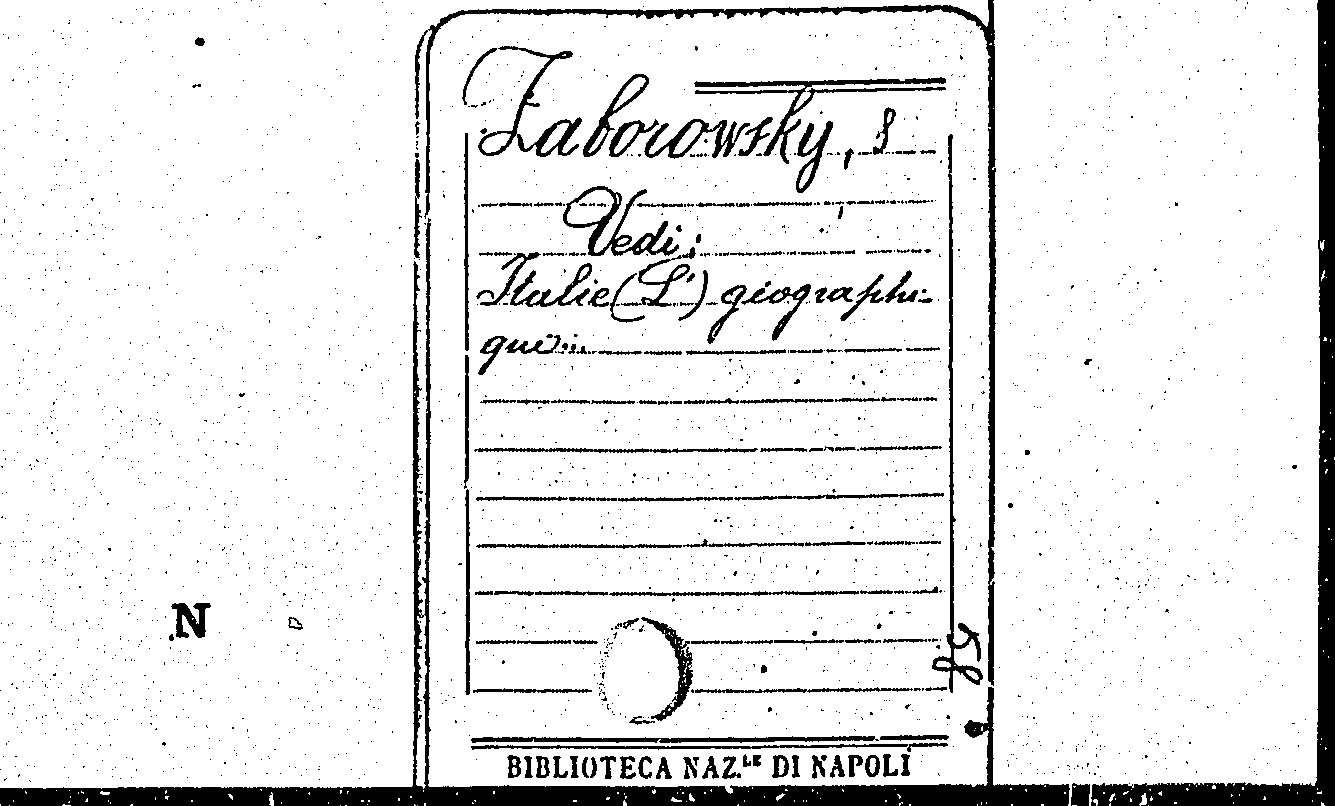 Zaborowsky, S
Vedi:
Italie (L') géographi-
que...
N
BIBLIOTECA NAZ.LE DI NAPOLI